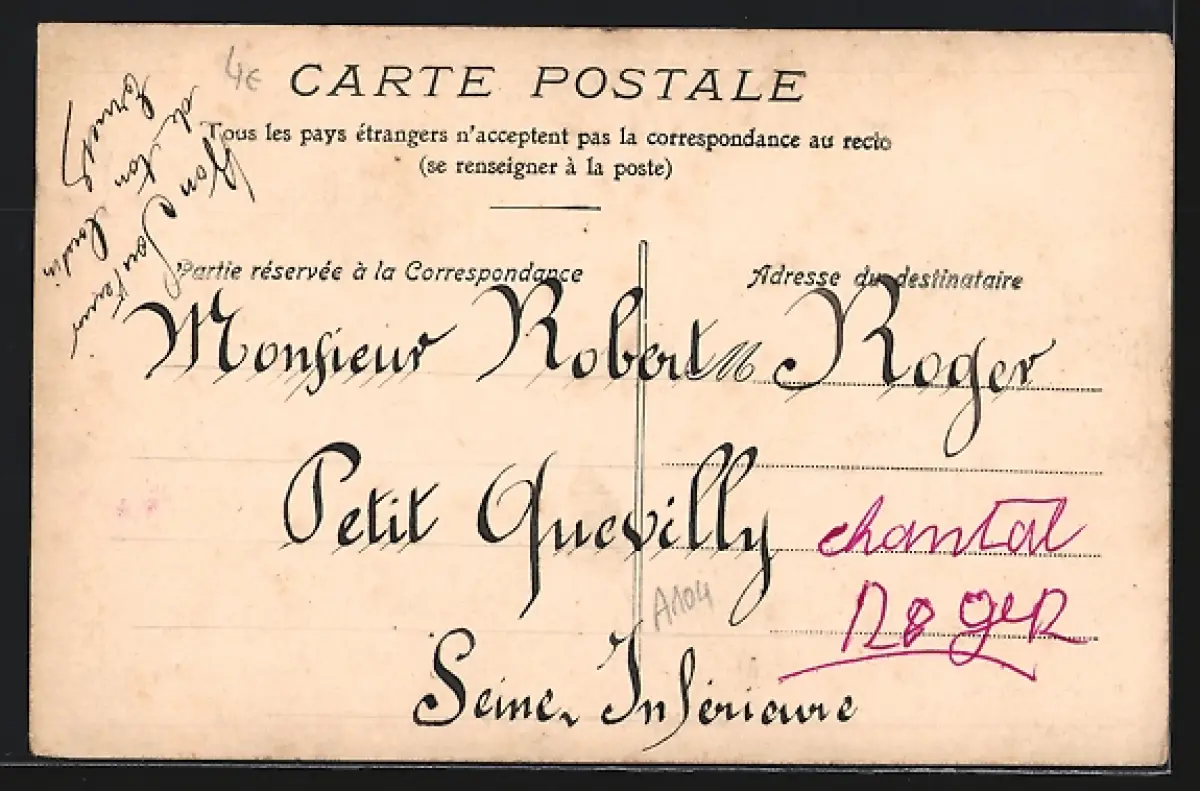 4€
CARTE POSTALE
Tous les pays étrangers n'acceptent pas la correspondance au recto
(se renseigner à la poste)
Bon Souvenir
de ton Cousin
Partie réservée à la Correspondance
Adresse du destinataire
Monsieur Robert Roger
Petit Quevilly
chantal
ROgeR
A104
Seine Inférieure